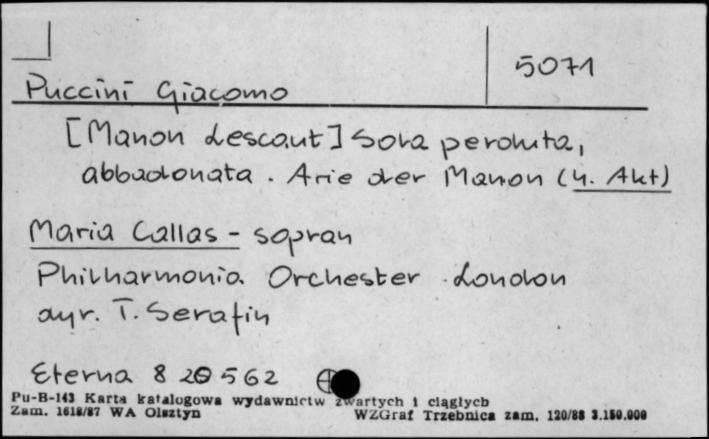 5071
Puccini Giacomo
[Manon Lescaut] Sola perduta,
abbadonata. Arie der Manon (4. Akt)
Maria Callas - sopran
Philharmonia Orchester London
dyr. T. Serafin
Eterna 8 20 562
Pu-B-143 Karta katalogowa wydawnictw zwartych i ciągłych
Zam. 1618/87 WA Olsztyn WZGraf Trzebnica zam. 120/88 3.150.000